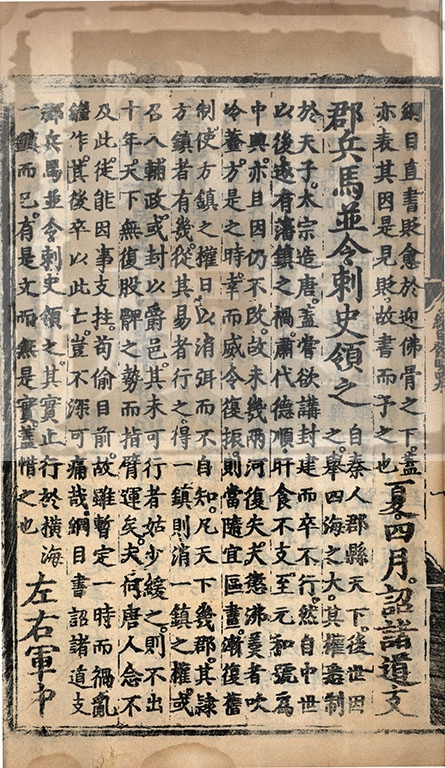 綱目直書貶愈於迎佛骨之下。蓋
亦表其因是見貶。故書而予之也
夏四月。詔諸道支
郡兵馬並令刺史領之
自秦人郡縣天下。後世因
之。舉四海之大。其權悉制
於天子。太宗造唐。蓋嘗欲講封建而卒不行。然自中世
以後。遂有藩鎮之禍。肅代德順。旰食不支。至元和號為
中興。亦且因仍不改。故未幾兩河復失。夫懲沸羹者吹
冷虀。方是之時。幸而威令復振。則當隨宜區畫。漸復舊
制。使方鎮之權日以消弭而不自知。凡天下幾郡。其隸
方鎮者有幾。從其易者行之。得一鎮則消一鎮之權。或
召入輔政。或封以爵邑。其未可行者姑少緩之。則不出
十年。天下無復股髀之勢而指臂運矣。夫何唐人念不
及此。徒能因事支拄。苟偷目前。故雖暫定一時而禍亂
繼作。其後卒以此亡。豈不深可痛哉。綱目書詔諸道支
郡兵馬並令刺史領之。其實止行於橫海
一鎮而已。有是文而無是實。蓋惜之也
左右軍中